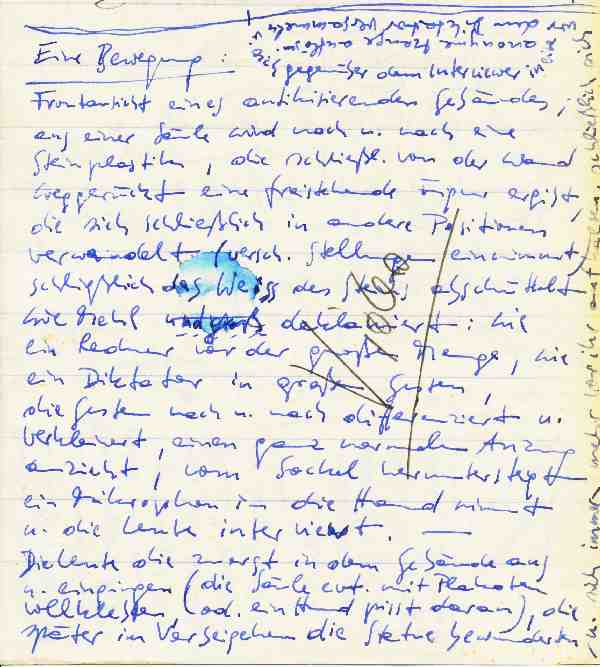 Eine Bewegung :
Frontansicht eines antikisierenden Gebäudes;
aus einer Säule wird nach u. nach eine
Steinplastik, die schließl. von der Wand
weggerückt eine freistehende Figur ergibt,
die sich schließlich in andere Positionen
verwandelt (versch. Stellungen einnimmt,
schließlich das Weiss des Steins abschüttelt
wie Mehl deklamiert: wie
ein Redner vor der großen Menge, wie
ein Diktator in großen Gesten,
die Gesten nach u. nach differenziert u.
verkleinert, einen ganz normalen Anzug
anzieht, vom Sockel heruntersteigt
ein Mikrophon in die Hand nimmt
u. die Leute interviewt. —
Die Leute die zuerst in dem Gebäude aus
u. eingingen (die Säule evt. mit Plakaten
vollklebten (od. ein Hund pisst daran), die
später im Vorbeigehen die Statue bewunderten
u. sich immer mehr vor ihr aufhalten, schließlich sich
vor dem Diktator versammeln
u. eine anonyme Menge
sich gegenüber dem Interviewer in